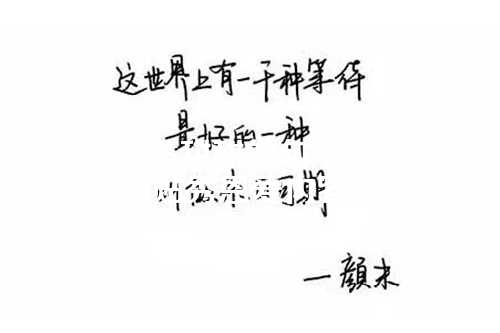 这世界上有一千种等待
最好的一种
可期
—颜末